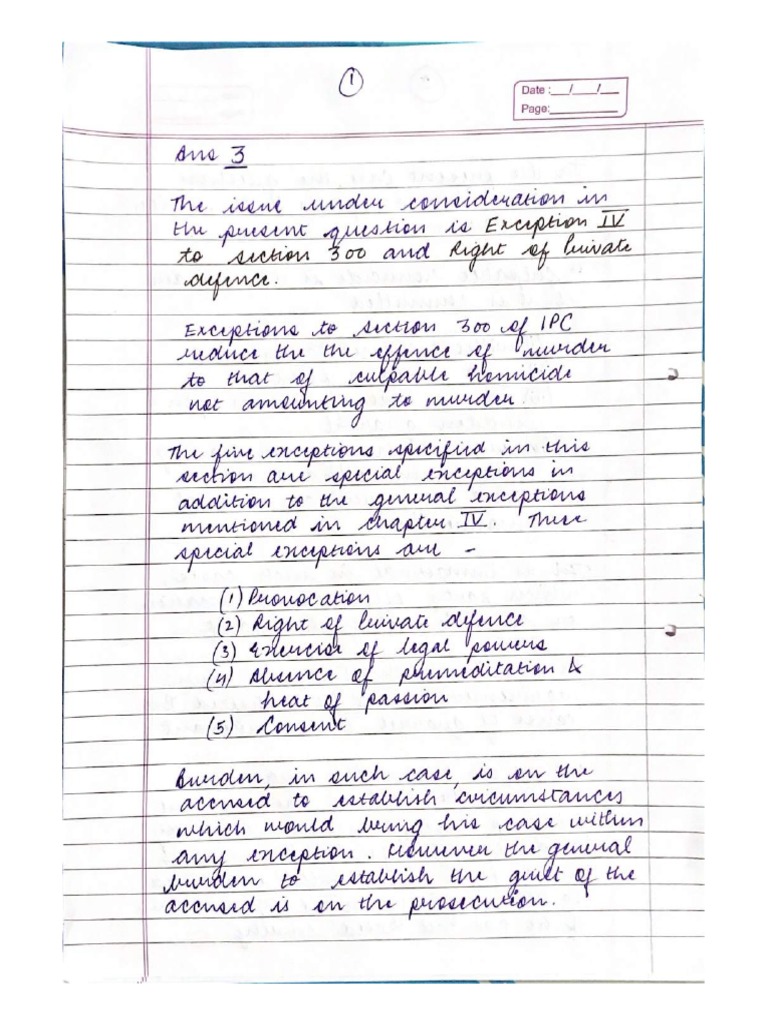 1
Date :__/__/__
Page:________
Ans 3
The issue under consideration in
the present question is Exception IV
to section 300 and Right of Private
defence.
Exceptions to section 300 of IPC
reduce the the offence of murder
to that of culpable homicide
not amounting to murder.
The five exceptions specified in this
section are special exceptions in
addition to the general exceptions
mentioned in chapter IV. These
special exceptions are -
(1) Provocation
(2) Right of Private defence
(3) Exercise of legal powers
(4) Absence of premeditation &
heat of passion
(5) Consent
Burden, in such case, is on the
accused to establish circumstances
which would bring his case within
any exception. However the general
burden to establish the guilt of the
accused is on the prosecution.